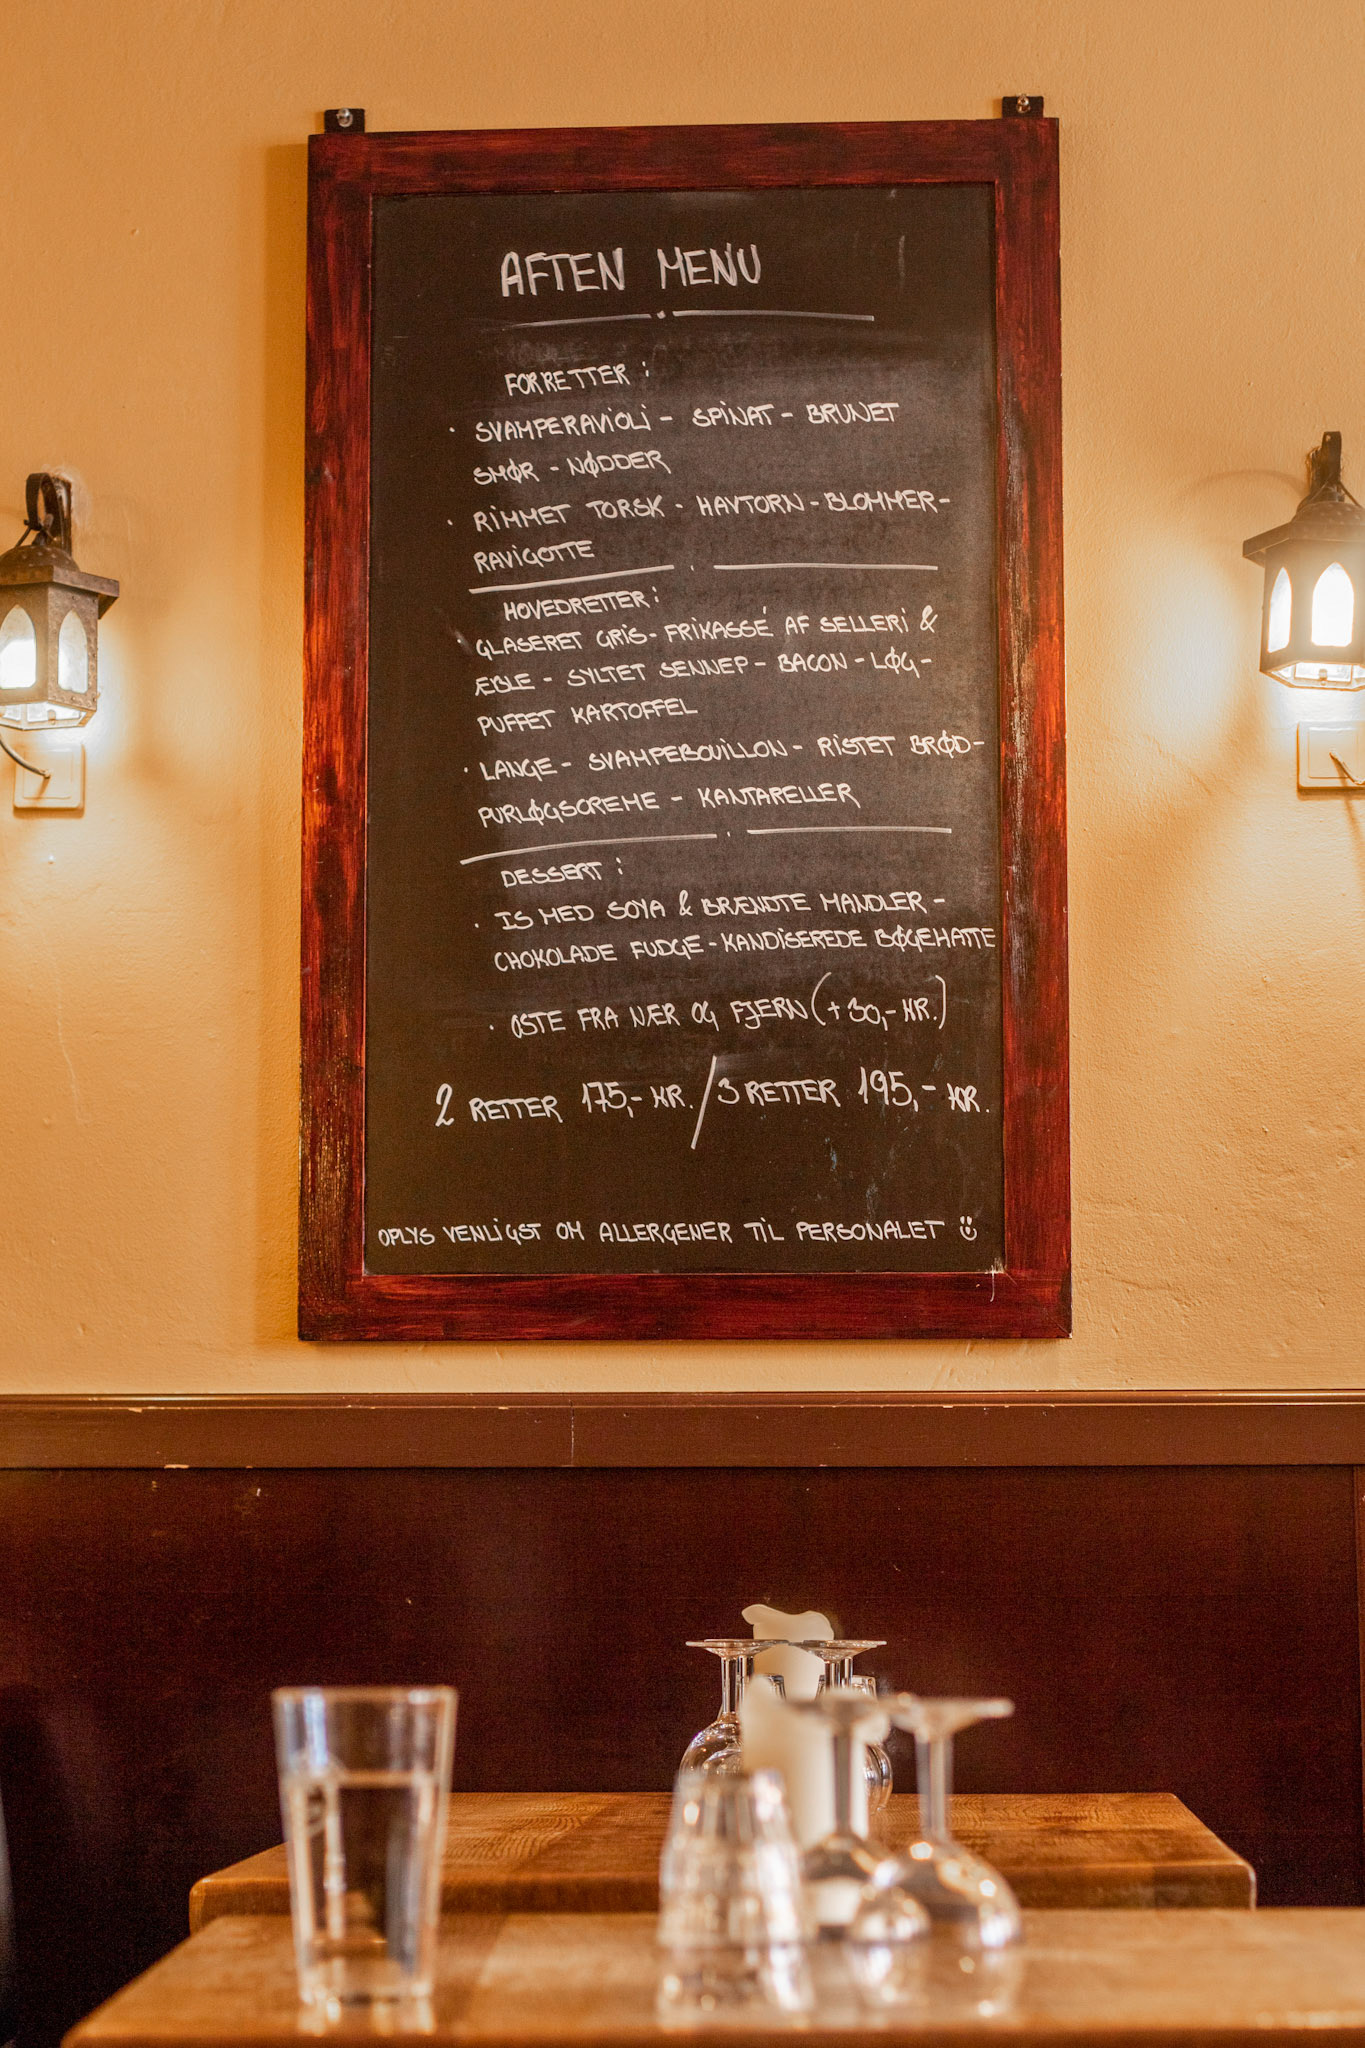 AFTEN MENU
FORRETTER :
· SVAMPERAVIOLI - SPINAT - BRUNET
SMØR - NØDDER
· RIMMET TORSK - HAVTORN - BLOMMER -
RAVIGOTTE
HOVEDRETTER :
· GLASERET GRIS - FRIKASSÉ AF SELLERI &
ÆBLE - SYLTET SENNEP - BACON - LØG -
PUFFET KARTOFFEL
· LANGE - SVAMPEBOUILLON - RISTET BRØD -
PURLØGSCREME - KANTARELLER
DESSERT :
· IS MED SOYA & BRÆNDTE MANDLER -
CHOKOLADE FUDGE - KANDISEREDE BØGEHATTE
· OSTE FRA NÆR OG FJERN (+30,- KR.)
2 RETTER 175,- KR. / 3 RETTER 195,- KR.
OPLYS VENLIGST OM ALLERGENER TIL PERSONALET